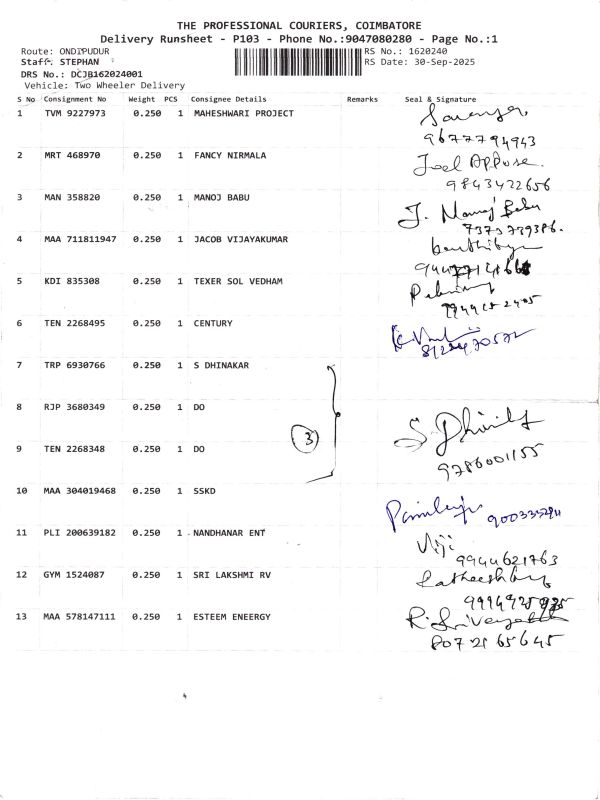 THE PROFESSIONAL COURIERS, COIMBATORE
Delivery Runsheet - P103 - Phone No.:9047080280 - Page No.:1
Route: ONDIPUDUR RS No.: 1620240
Staff: STEPHAN RS Date: 30-Sep-2025
DRS No.: DCJB162024001
Vehicle: Two Wheeler Delivery
S No Consignment No Weight PCS Consignee Details Remarks Seal & Signature
1 TVM 9227973 0.250 1 MAHESHWARI PROJECT
9677794943
2 MRT 468970 0.250 1 FANCY NIRMALA Joel
9843422656
3 MAN 358820 0.250 1 MANOJ BABU J. Manoj Babu
7373739386.
4 MAA 711811947 0.250 1 JACOB VIJAYAKUMAR
5 KDI 835308 0.250 1 TEXER SOL VEDHAM
6 TEN 2268495 0.250 1 CENTURY
7 TRP 6930766 0.250 1 S DHINAKAR
8 RJP 3680349 0.250 1 DO
3
9 TEN 2268348 0.250 1 DO
9786001155
10 MAA 304019468 0.250 1 SSKD
11 PLI 200639182 0.250 1 NANDHANAR ENT Viji
9944621763
12 GYM 1524087 0.250 1 SRI LAKSHMI RV
13 MAA 578147111 0.250 1 ESTEEM ENEERGY
8072165645